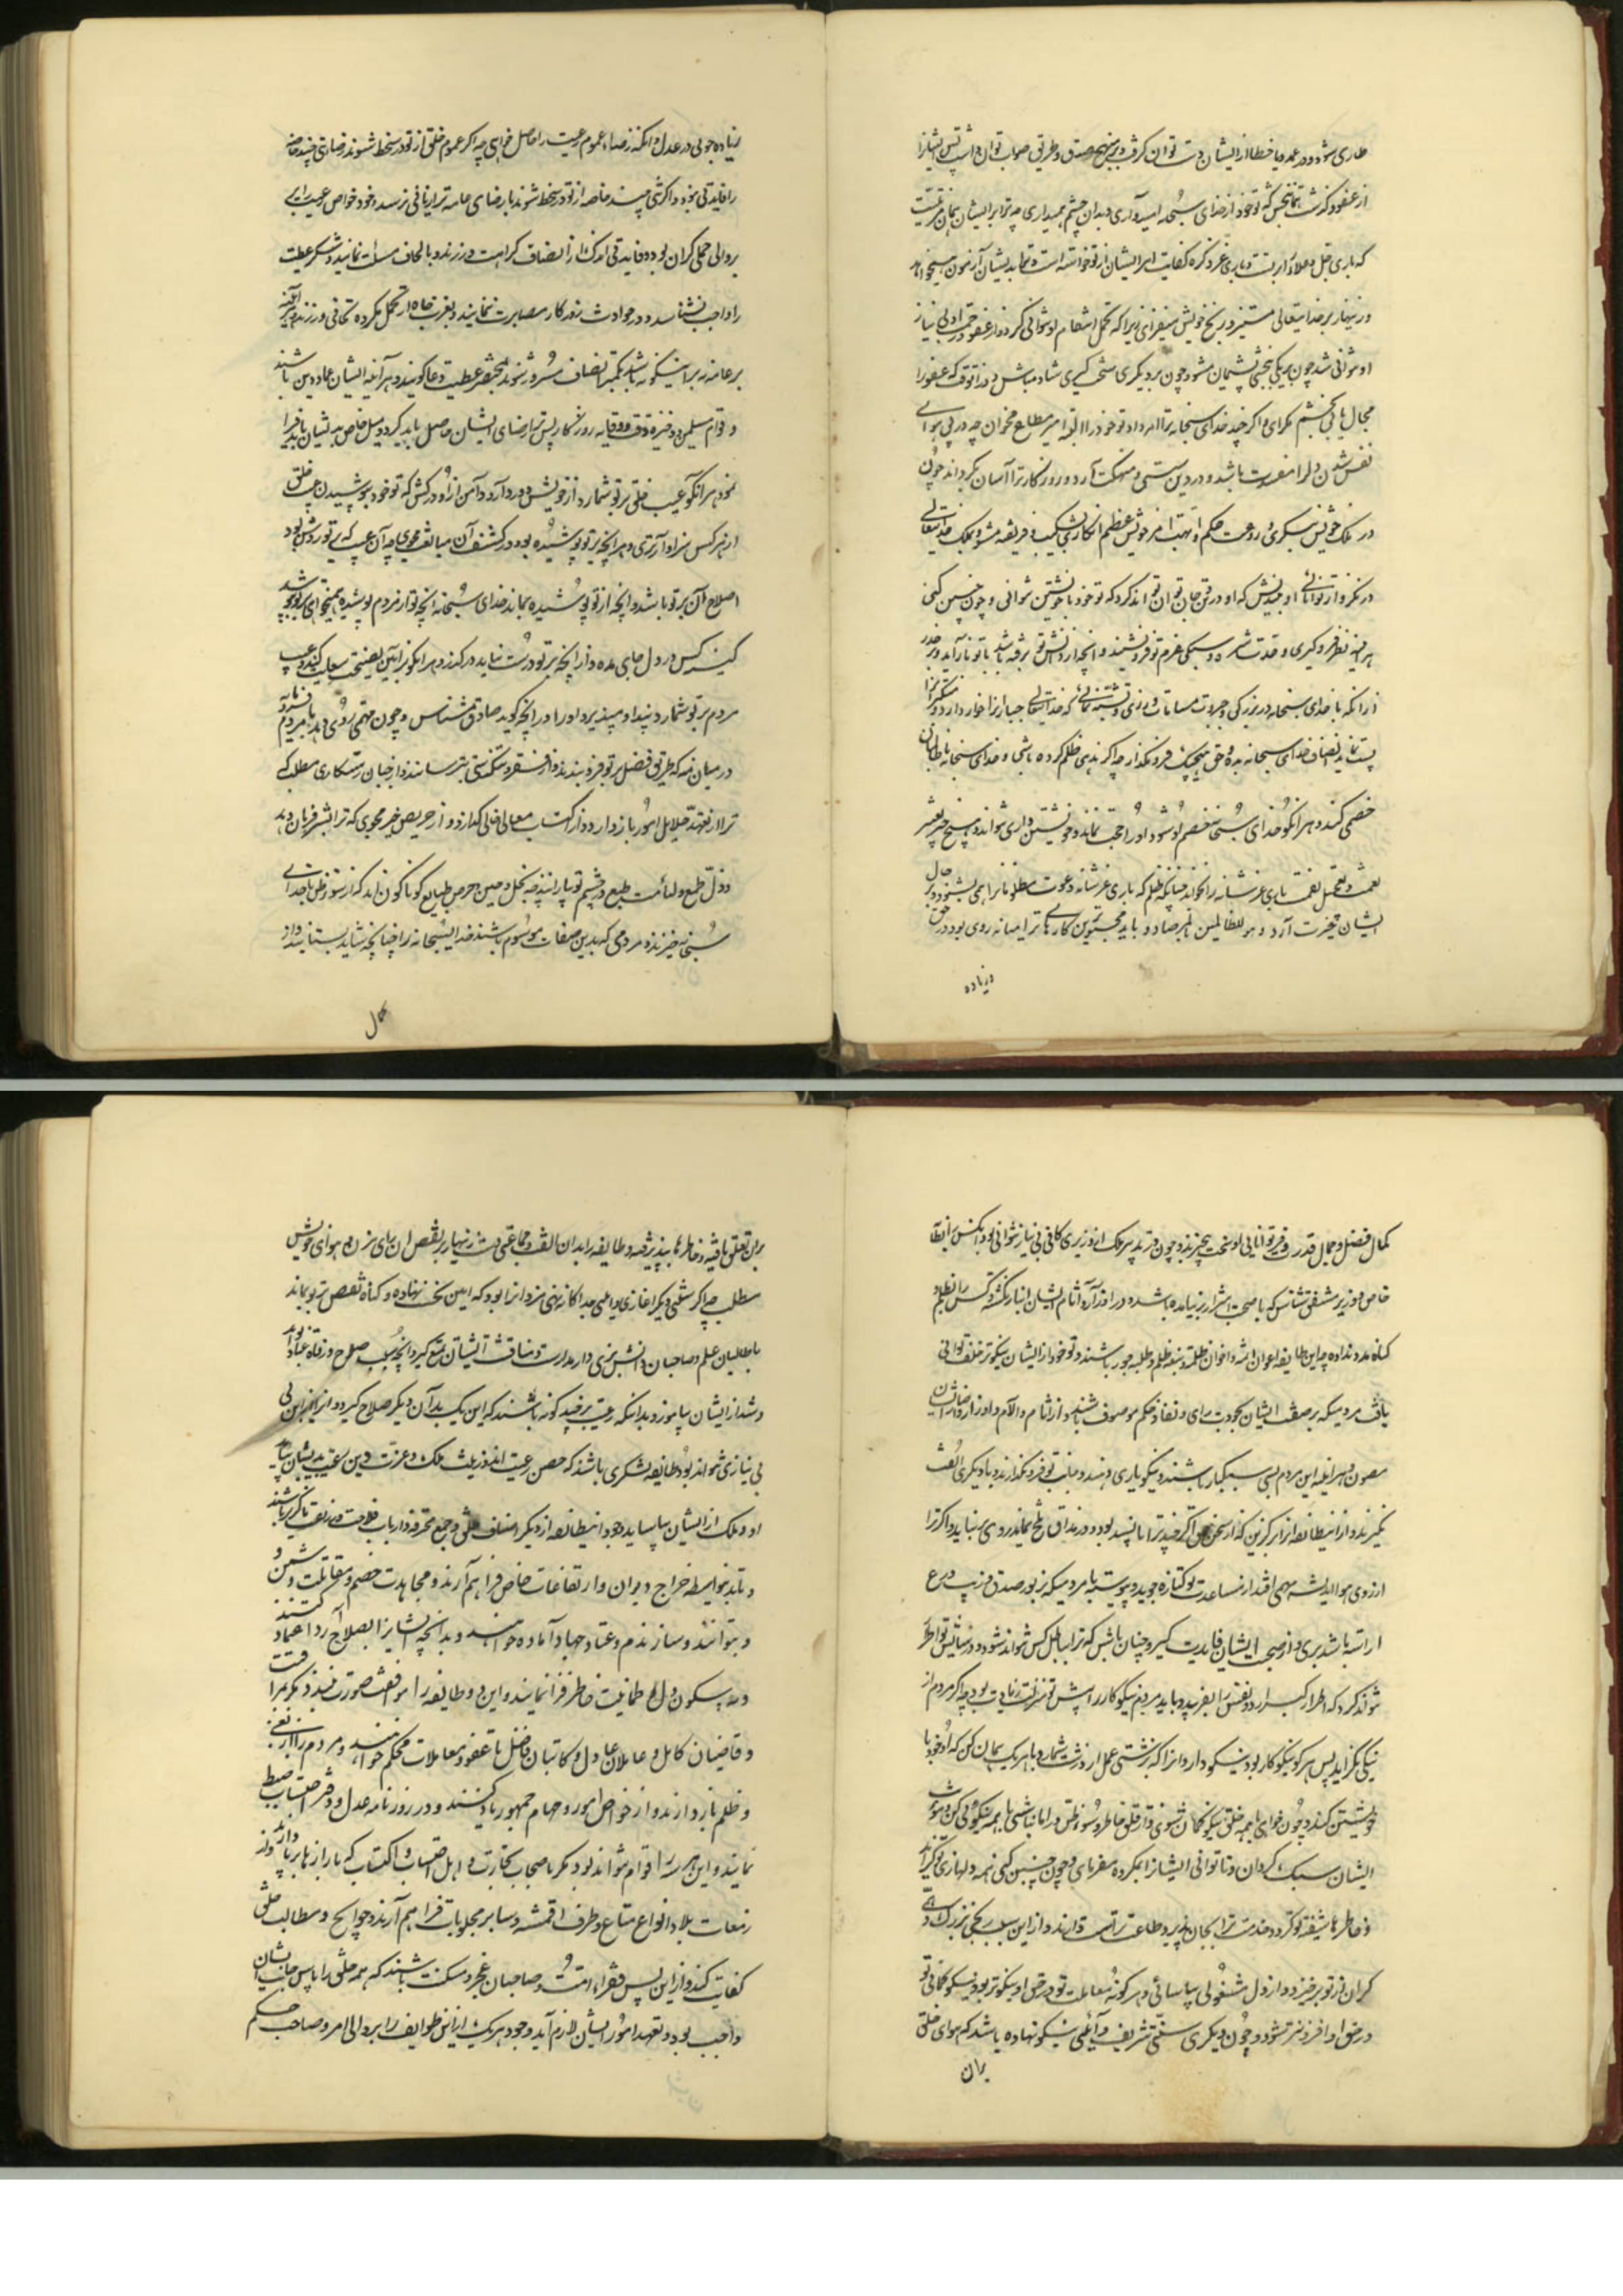 طاری شود و در عمد و یا خطا از ایشان دست توان گرفت و بر نهج صدق و طریق صواب توان داشت پس ایشانرا
از عفو و گذشت همانبخش که تو خود از خدای سبحانه امیدواری و بدان چشم همیداری چه ترا بر ایشان همان مزیتست
که باری جل و علا
و زینهار بر خدایتعالی مستیز و رنج خویش میفزای زیرا که تحمل انتقام او نتوانی کرد و از عفو و رحمت او بی نیاز
او نتوانی شد چون بر یکی ببخشی پشیمان مشو و چون بر دیگری سخت گیری شاد مباش و در آنوقت که عفو را
مجال یابی بخشم مگرای و اگر چند خدای سبحانه ترا امر داد تو خود را البته امیر مطاع مخوان چه در پی هوای
نفس شدن دلرا مضرت باشد و در دین سستی و منهکت آرد و روزگار ترا آسان بگرداند چون
در ملک خویش بنگری و رفعت حکم و ابهت امر خویش عظیم انگاری بشکیب و فریفته مشو و بملک خدایتعالی
در نگر و از توانائی او بیندیش که او در تن و جان تو آن تواند کرد که تو خود با خویشتن نتوانی و چون چنین کنی
از آنکه با خدای سبحانه در بزرگی و جبروت مسامات ورزی و تشبه نمائی که خدایتعالی جباررا خوار دارد و متکبر را
پست نماید انصاف خدای سبحانه بده و حق هیچیک فرو مگذار چه اگر ندهی ظلم کرده باشی و خدای سبحانه با ظالمان
خصمی کند و هر آنکو خدای سبحانه خصم او شود او را حجت نماند و خویشتن داری نتواند و هیچ چیز تغییر
نعمت و تعجیل نقمت باری عز شانه را نخواند چنانکه ظلم که باری عز شانه دعوت مظلومانرا همی بشنود و بر حال
ایشان غیرت آرد و هو للظالمین لبالمرصاد و باید محبوبترین کارها ترا میانه روی بود در حق
و زیاده
زیاده جوئی در عدل و آنکه رضاء عموم رعیت را حاصل خواهی چه اگر عموم خلق از تو در سخط شوند رضای تنی چند خاصه
را فایدتی نبود و اگر تنی چند خاصه از تو در سخط شوند با رضای عامه ترا زیانی نرسد و خود خواص رعیت برای
بر والی حملی گران بود و فایدتی اندک از انصاف کراهت ورزند و بالحاف مسئلت نمایند و شکر عطیت
را واجب نشناسند و در حوادث روزگار مصابرت ننمایند
بر عامه نه بر اینگونه باشند بکمتر انصاف مسرور شوند و بمختصر عطیت دعا گویند و هر آینه ایشان عماد دین باشند
و قوام مسلمین و ذخیره وقت و وقایه روزگار پس ترا رضای ایشان حاصل باید کرد و میل خاص به ایشان باید فرا
نمود هر آنکو عیب خلق بر تو شمارد از خویش دور دار و دامن از او درکش که تو خود بپوشیدن عیب خلق
از هر کس سزاوارتری و هر آنچه بر تو پوشیده بود در کشف آن مبالغت مجوی چه آن عیب که بر تو روشن بود
اصلاح آن بر تو باشد و آنچه از تو پوشیده بماند خدای سبحانه آنچه تو از مردم پوشیده همیخواهی بر تو بپوشد
کینه کس در دل جای مده و از آنچه بر تو درست نیاید درگذر و هر آنکو بر آئین نصیحت سعایت کند و عیب
مردم بر تو شمارد بپندار و مپذیر و او را در آنچه گوید صادق مشناس و چون مهمی روی دهد با مردم
در میان منه که طریق فضل بر تو فرو بندند و از فقر و تنگدستی بترسانند و از جبان رستگاری مطلب که
ترا از تعهد جلایل امور باز دارد و از اکتساب معالی فنا گذارد و از حریص خیر مجوی که ترا بشر فرمان دهد
و ذل طمع و لئامت طبع در چشم تو بیاراید چه بخل و جبن و حرص طبایع گوناگون اند که از سوء ظن با خدای
سبحانه خیزند و مردمی که بدین صفات موسوم باشند خدای سبحانه را چنانچه شاید بستایند و از
کمال
کمال فضل و جمال قدرت و فر توانایی او سخت بیخبرند و چون در تدبیر ملک از وزیری کافی بی نیاز نتوانی بود آنکس را بطانه
خاص و وزیر مشفق شناس که با صحبت اشرار بر نیامده باشد و در اوزار و آثام ایشان انباز نگشته و کس را بظلم و
گناه مدد نداده چه این طایفه اعوان اثمه و اخوان ظلمه و تبعه ظلم و طلبه جور باشند و تو خود از ایشان نیکوتر خلف توانی
یافت مردمیکه بر صفت ایشان بجودت رای و نفاذ حکم موصوف باشند و از آثام و آلام و اوزار و آصار ایشان
مصون و هر آینه این مردم بسی سبکبار باشند و نیکو یاری دهند و جانب تو فرو نگذارند و با دیگری الفت
نگیرند و از اینطایفه آنرا برگزین که از سخن حق اگر چند ترا ناپسند بود و در مذاق تلخ نماید روی برنتابد و اگر ترا
ارزوی هوا بلیه مهمی افتد از مساعدت تو کناره جوید و پیوسته با مردمیکه بزیور صدق و زیب ورع
آراسته باشند بری و از صحبت ایشان فایدت گیر و چنان باش که ترا بباطل کس نتواند ستود و در ستایش تو اطراء
نتواند کرد که اطراء کبر آرد و نفس را بفریبد و باید مردم نیکوکار را پیش تو منزلت زیادت بود چه اگر مردم از
نیکی بگراید پس هر کو نیکوکار بود نیکو دار و آنرا که بزشتی عمل ارزد زشت شمار و با هر یک همان کن که او خود با
خویشتن کند و چون خواهی با همه خلق نیکو گمان شوی و از قلق خاطر و سوء ظن در امان باشی با همه نیکوئی کن و مؤنت
ایشان سبک گردان و تا توانی ایشانرا بمکروه مفرمای و چون چنین کنی همه دلها رای تو گیرند
و خاطرها شیفته تو گردد و خدمت ترا بجان پذیرند و طاعت ترا مسلم دارند و از این سبب رنجی بزرگ و
گران از تو برخیزد و از دل مشغولی بیاسائی و هر کو نه معاملت تو در حق او نیکوتر بود نیکو گمانی تو
در حق او افزونتر شود و چون دیگری سنتی شریف و آئینی نیکو نهاده باشد که هوای خلق
بدان
بدان تعلق یافته و خاطرها بپذیرفته و طایفه را بدان الفت و جماعتی است زینهار بر نقص آن رای مزن و هوای خویش
مطلب چه اگر سنتی دیگر آغازی و آئینی جداگانه نهی مزد آنرا بود که آئین نخست نهاده و گناه نقص بر تو بماند
با طالبان علم و صاحبان دانش بزی و از مدارست و مناقشت ایشان تمتع گیر و آنچه سبب صلاح و رفاه عباد بود
و شد از ایشان بیاموز و بدانکه رعیت بر چند گونه باشند که این یک بدان دیگر صلاح گیرد و آن از این
بی نیازی نتواند بود طایفه لشکری باشند که حصن رعیت اند و زینت ملک و عزت دین رعیت بدیشان بپاید
و ملک از ایشان بیاساید و وجود اینطایفه از دیگر اصناف خلق و جمع محترفه و ارباب فلاحت و زراعت ناگزیر باشد
و تا بدینواسطه خراج دیوان و ارتفاعات خاص فراهم آرند و مجاهدت خصم و مقاتلت دشمن
و بتوانند و ساز رزم و عتاد جهاد آماده خواهند و بدانچه ایشانرا بصلاح آرد اعتماد کنند
و به سکون دل و طمانینت خاطر فزا نمایند و این دو طایفه را موافقت صورت نبندد مگر مرافقت
و قاضیان کامل و عاملان عادل و کاتبان فاضل تا عقود معاملات محکم خواهند و مردم را از بغی
و ظلم باز دارند و از خواص امور و مهام جمهور یاد کنند و در روزنامه عدل و دفتر احتساب ضبط
نمایند و این هر سه را قوام نتواند بود مگر باصحاب تجارت و اهل احتساب و اکتساب که بازارها بر پا دارند و از
رقعات بلاد انواع متاع و طرف اقمشه و سایر مجلوبات فراهم آرند و حوایج و مطالب خلق
کفایت کنند و از این پس فقراء امت و صاحبان عجز و مسکنت باشند که همه خلق را پاس جانب ایشان
واجب بود و تعهد امور ایشان لازم آید و وجود هر یک از این طوایف را بر والی امر و صاحب حکم